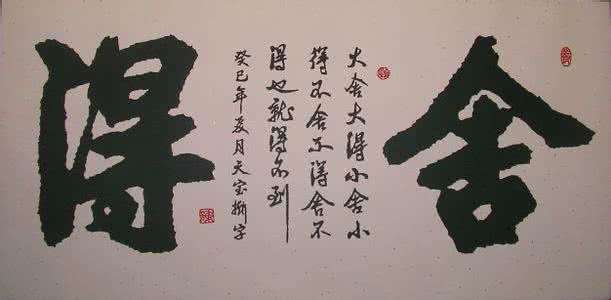 舍
大舍大得小舍小
得不舍不得舍不
得也就得不到
癸巳年夏月天宝撕字
得